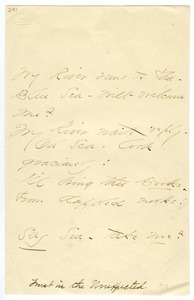 241
My River runs to thee -
Blue Sea - Wilt welcome
me?
My River wait reply
Oh Sea - look
graciously!
I'll bring thee Brooks
From spotted nooks -
Say Sea - take me?
Trust in the Unexpected